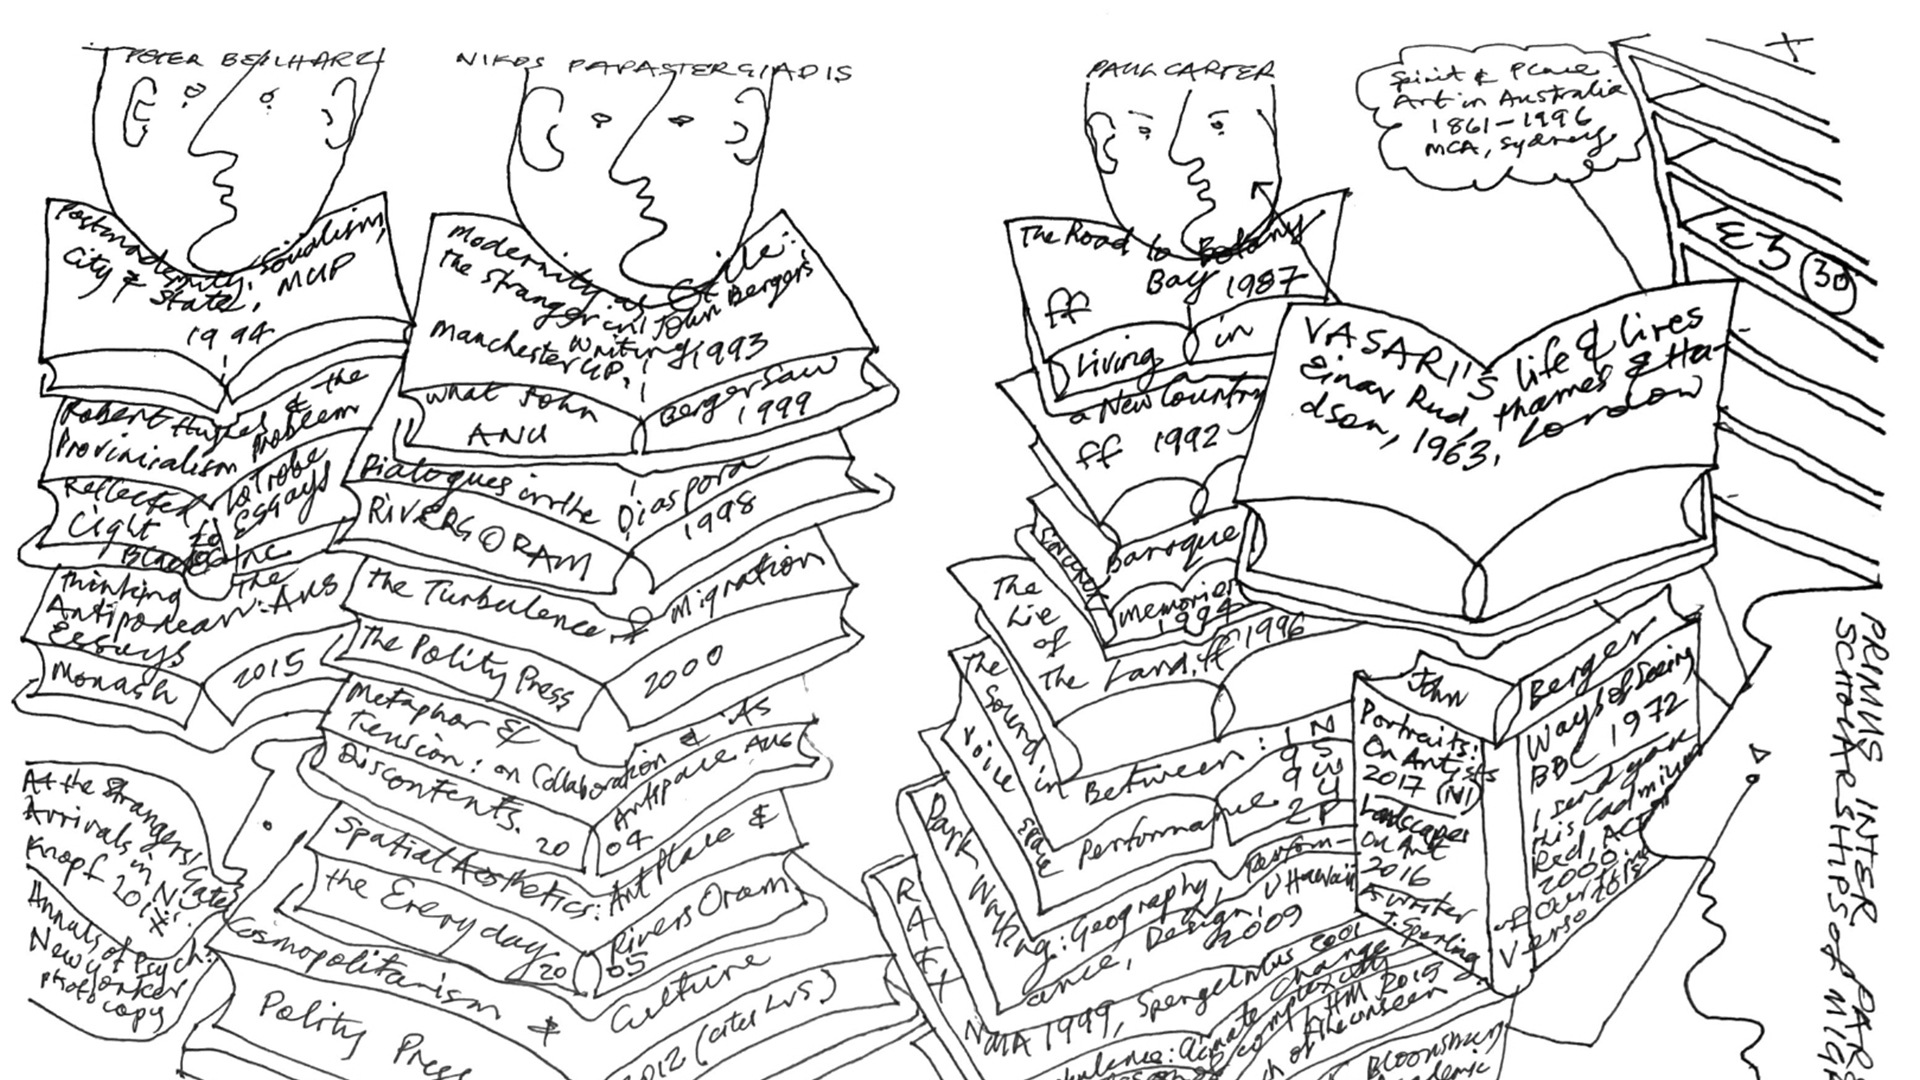 PETER BEILHARZ
NIKOS PAPASTERGIADIS
PAUL CARTER
Spirit & Place
Art in Australia
1861-1996
MCA, Sydney
£3 (30)
Postmodernity, Socialism,
City & State, MUP
1994
Robert Hughes & the
Provincialism Problem
Reflected
Light
La Trobe
Essays
Black Inc
Thinking
the
Antipodean: Aus
Essays
Monash
2015
At the Strangers' Gate
Arrivals in NY
Knopf
Annals of Psych:
New Yorker
photocopy
Modernity as Exile:
The Stranger in John Bergers
Writing
Manchester UP, 1993
What John
Berger Saw
ANU
1999
Dialogues in the Diaspora
RIVERS O RAM
1998
The Turbulence of Migration
The Polity Press
2000
Metaphor &
Tension: on Collaboration & its
Discontents.
Artspace AUG
20 04
Spatial Aesthetics: Art Place &
the Everyday
Rivers Oram
20 05
Cosmopolitanism & Culture
Polity Press
2012 (cites LVS)
The Road to Botany
Bay 1987
ff
Living in
a New Country
ff 1992
Baroque
Memories
1994
The
Lie
of
the Land, ff 1996
The
Sound in
Between:
Voice
Space
Performance
Park
Walking: Geography, Perform-
ance, Design, U Hawaii
2009
NMA 1999, Spengelmus 2001
Climate Change
HM 2019
Bloomsbury
Academic
VASARI'S life & lives
Einar Rud, Thames & Hu-
dson, 1963, London
John
Berger
Portraits:
On Artists
2017 (N)
Landscapes
On Art
2016
As Writer
J. Sperling
Ways of Seeing
BBC 1972
I send you
this Cadmium
Red, ACT
2000
of our time
Verso
PRIMUS INTER PAR
SCHOLARSHIPS of MIG